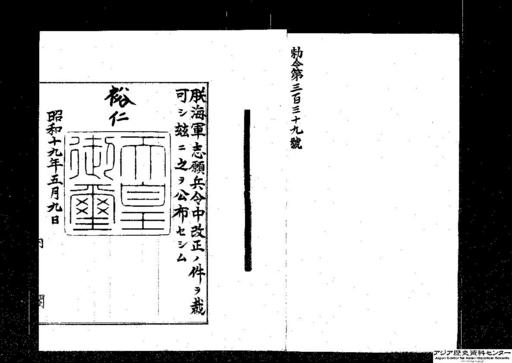 勅令第三百三十九號
朕海軍志願兵令中改正ノ件ヲ裁
可シ茲ニ之ヲ公布セシム
裕仁
天皇
御璽
昭和十九年五月九日
内
閣
アジア歴史資料センター
Japan Center for Asian Historical Records